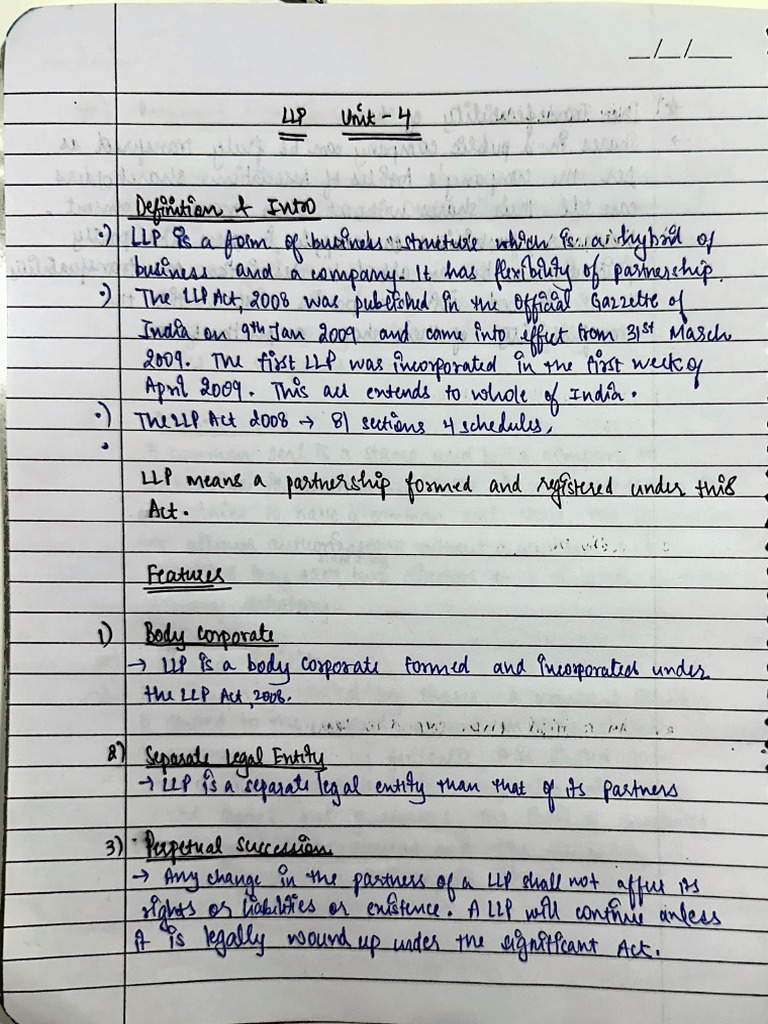 __/__/____
LLP Unit - 4
Definition & Intro
•) LLP is a form of business structure which is a hybrid of
business and a company. It has flexibility of partnership.
•) The LLP Act, 2008 was published in the Official Gazzette of
India on 9th Jan 2009 and came into effect from 31st March
2009. The first LLP was incorporated in the first week of
April 2009. This act entends to whole of India.
•) The LLP Act 2008 → 81 sections 4 schedules,
•
LLP means a partnership formed and registered under this
Act.
Features
1) Body Corporate
→ LLP is a body corporate formed and incorporated under
the LLP Act, 2008.
2) Separate Legal Entity
→ LLP is a separate legal entity than that of its partners
3) Perpetual Succession
→ Any change in the partners of a LLP shall not affect its
rights or liabilities or existence. A LLP will continue unless
it is legally wound up under the significant Act.